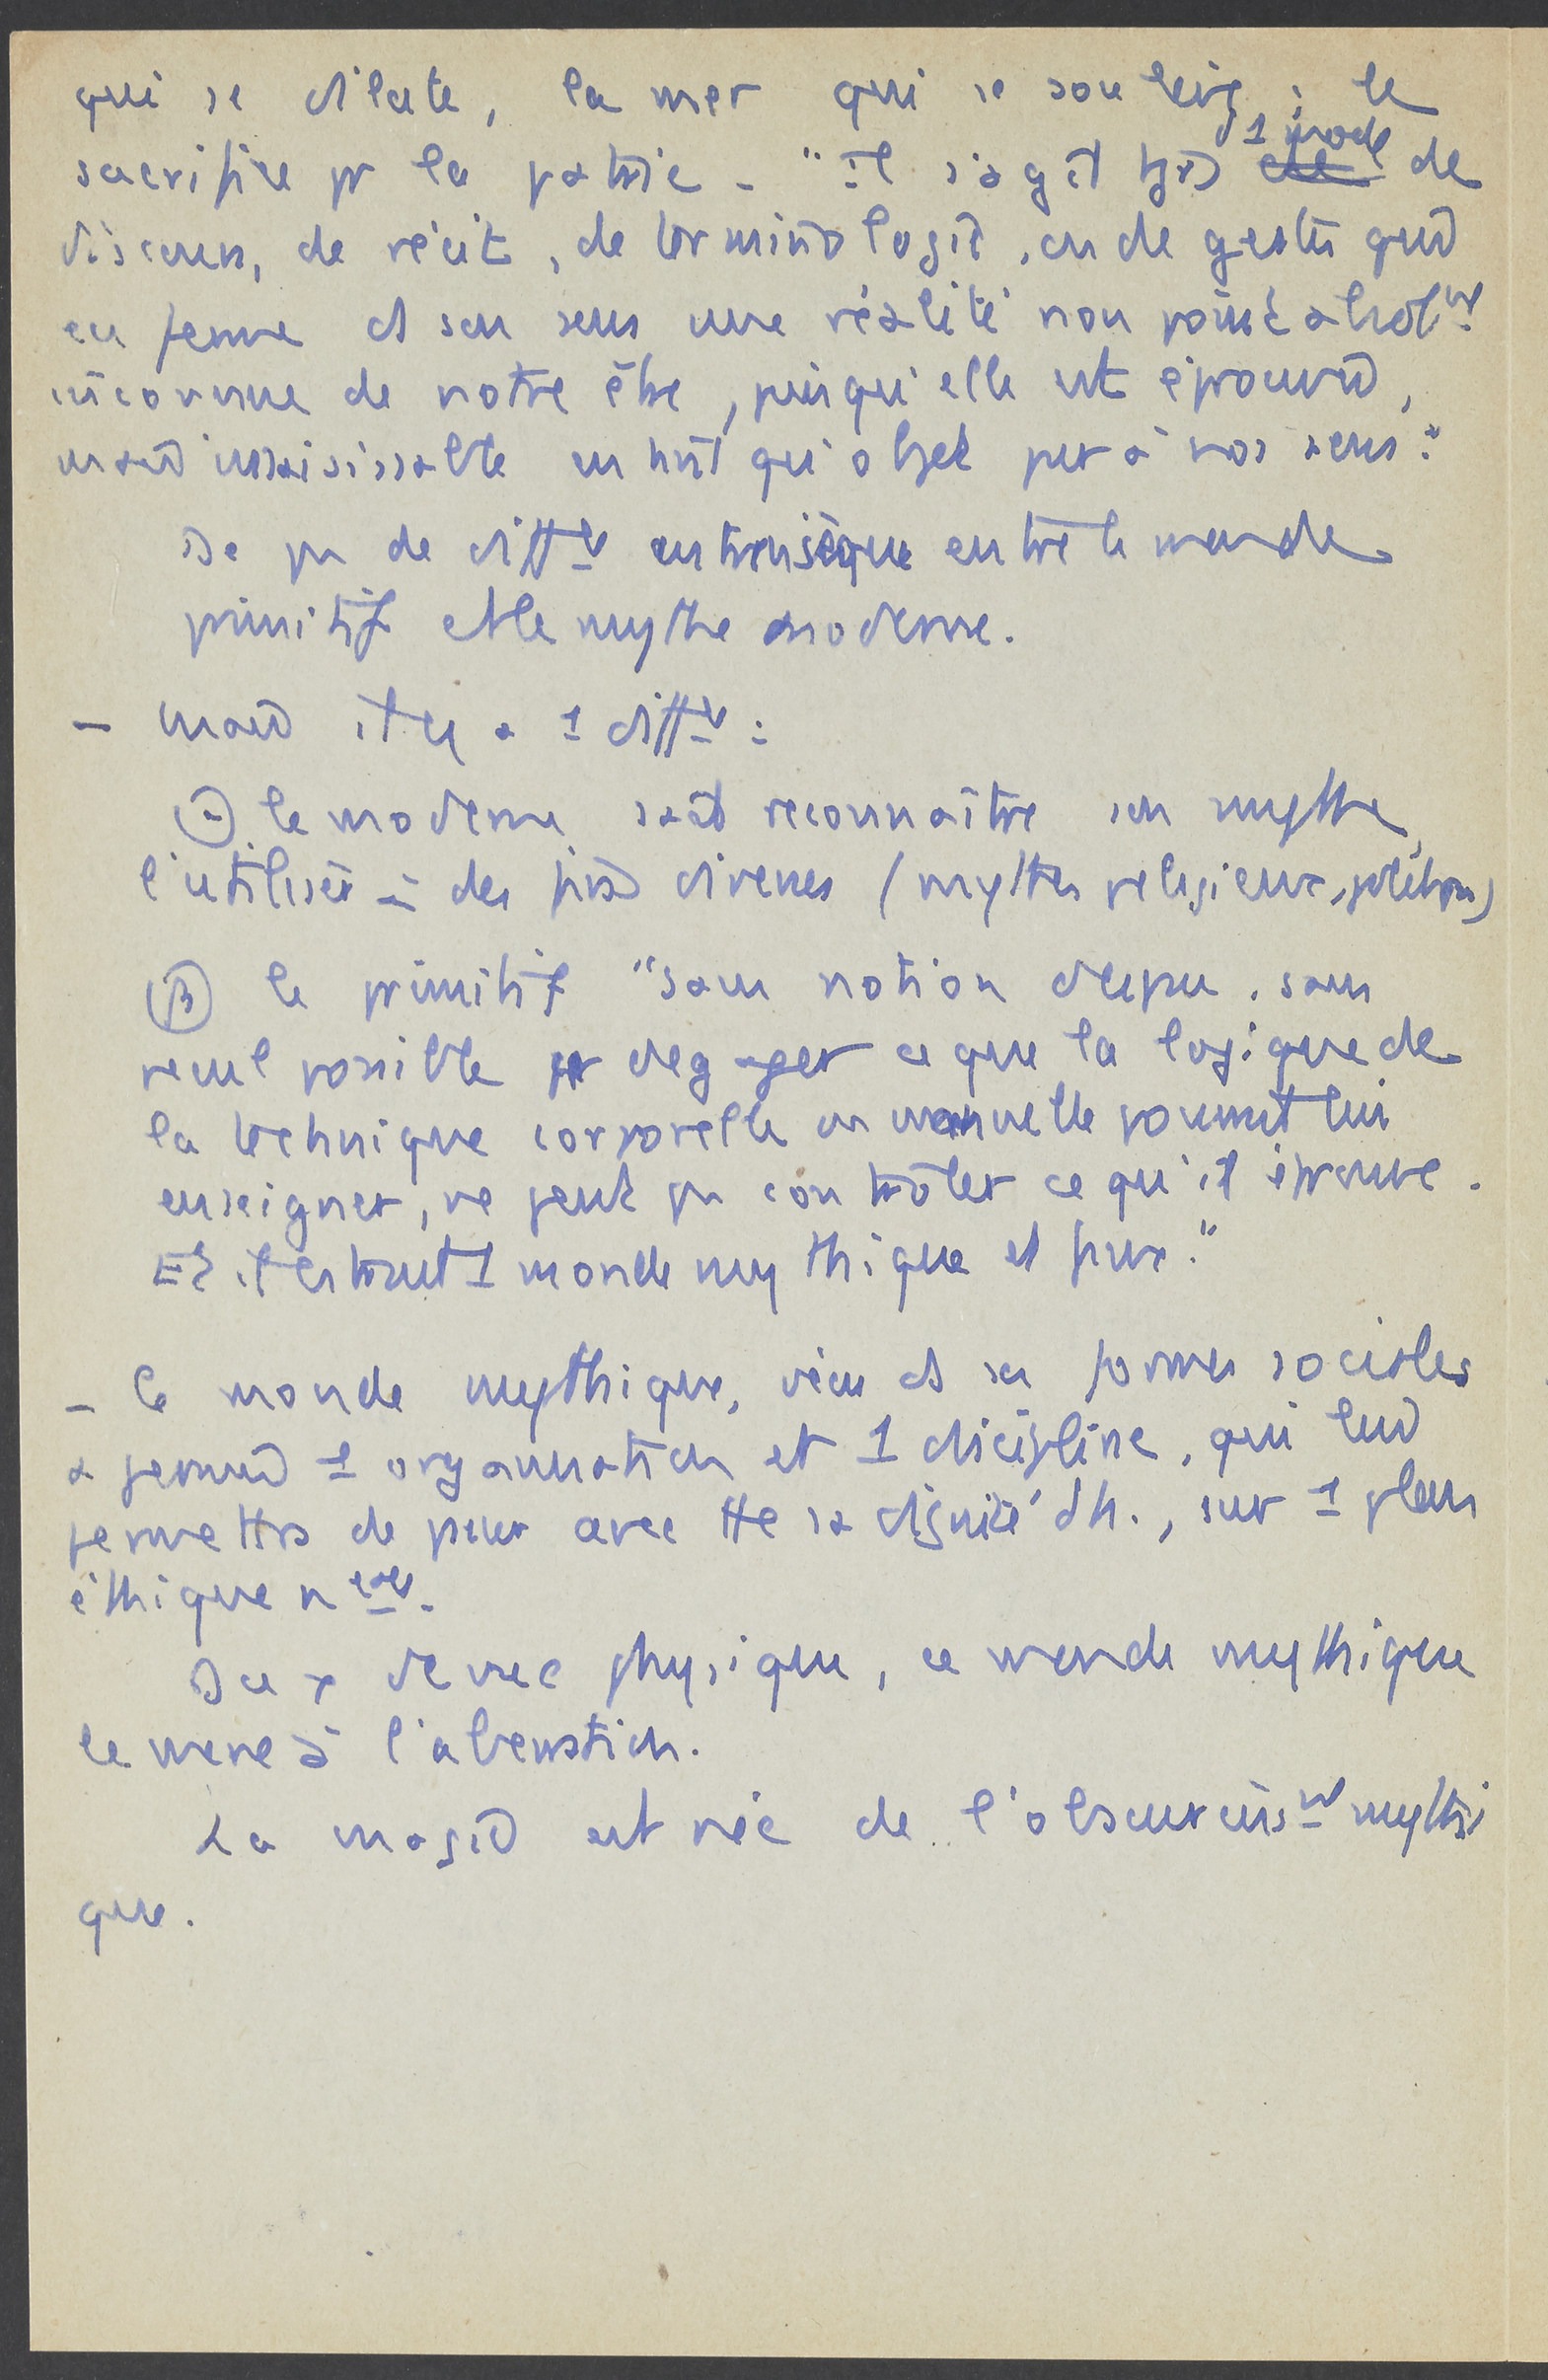 qui se dilate, la mer qui se soulève ; le
sacrifice pr la patrie - "il s'agit tjrs d'1 mode de
discours, de récit, de terminologie, ou de gestes qui
en ferme ds son sens une réalité non point absolt
inconnue de notre être, puisqu'elle est éprouvée,
mais insaisissable en tant qu'objet par à nos sens."
Dc pas de diffce intrinsèque entre le monde
primitif et le mythe moderne.
- mais il y a 1 diffce :
α le moderne sait reconnaître son mythe,
l'utiliser à des fins diverses (mythes religieux, politiques)
β le primitif "sans notion , sans
recul possible pr dégager ce que la logique de
la technique corporelle ou manuelle pourrait lui
enseigner, ne peut pas contrôler ce qu'il éprouve.
Et il construit 1 monde mythique et faux."
- Ce monde mythique, vécu ds ses formes sociales
a permis 1 organisation et 1 discipline, qui lui
permettra de passer avec tte sa dignité d'h., sur 1 plan
éthique nécre.
Ds le x devenu physique, ce monde mythique
le mène à l'aberration.
La magie est née de l'obscurcisst mythi
que.